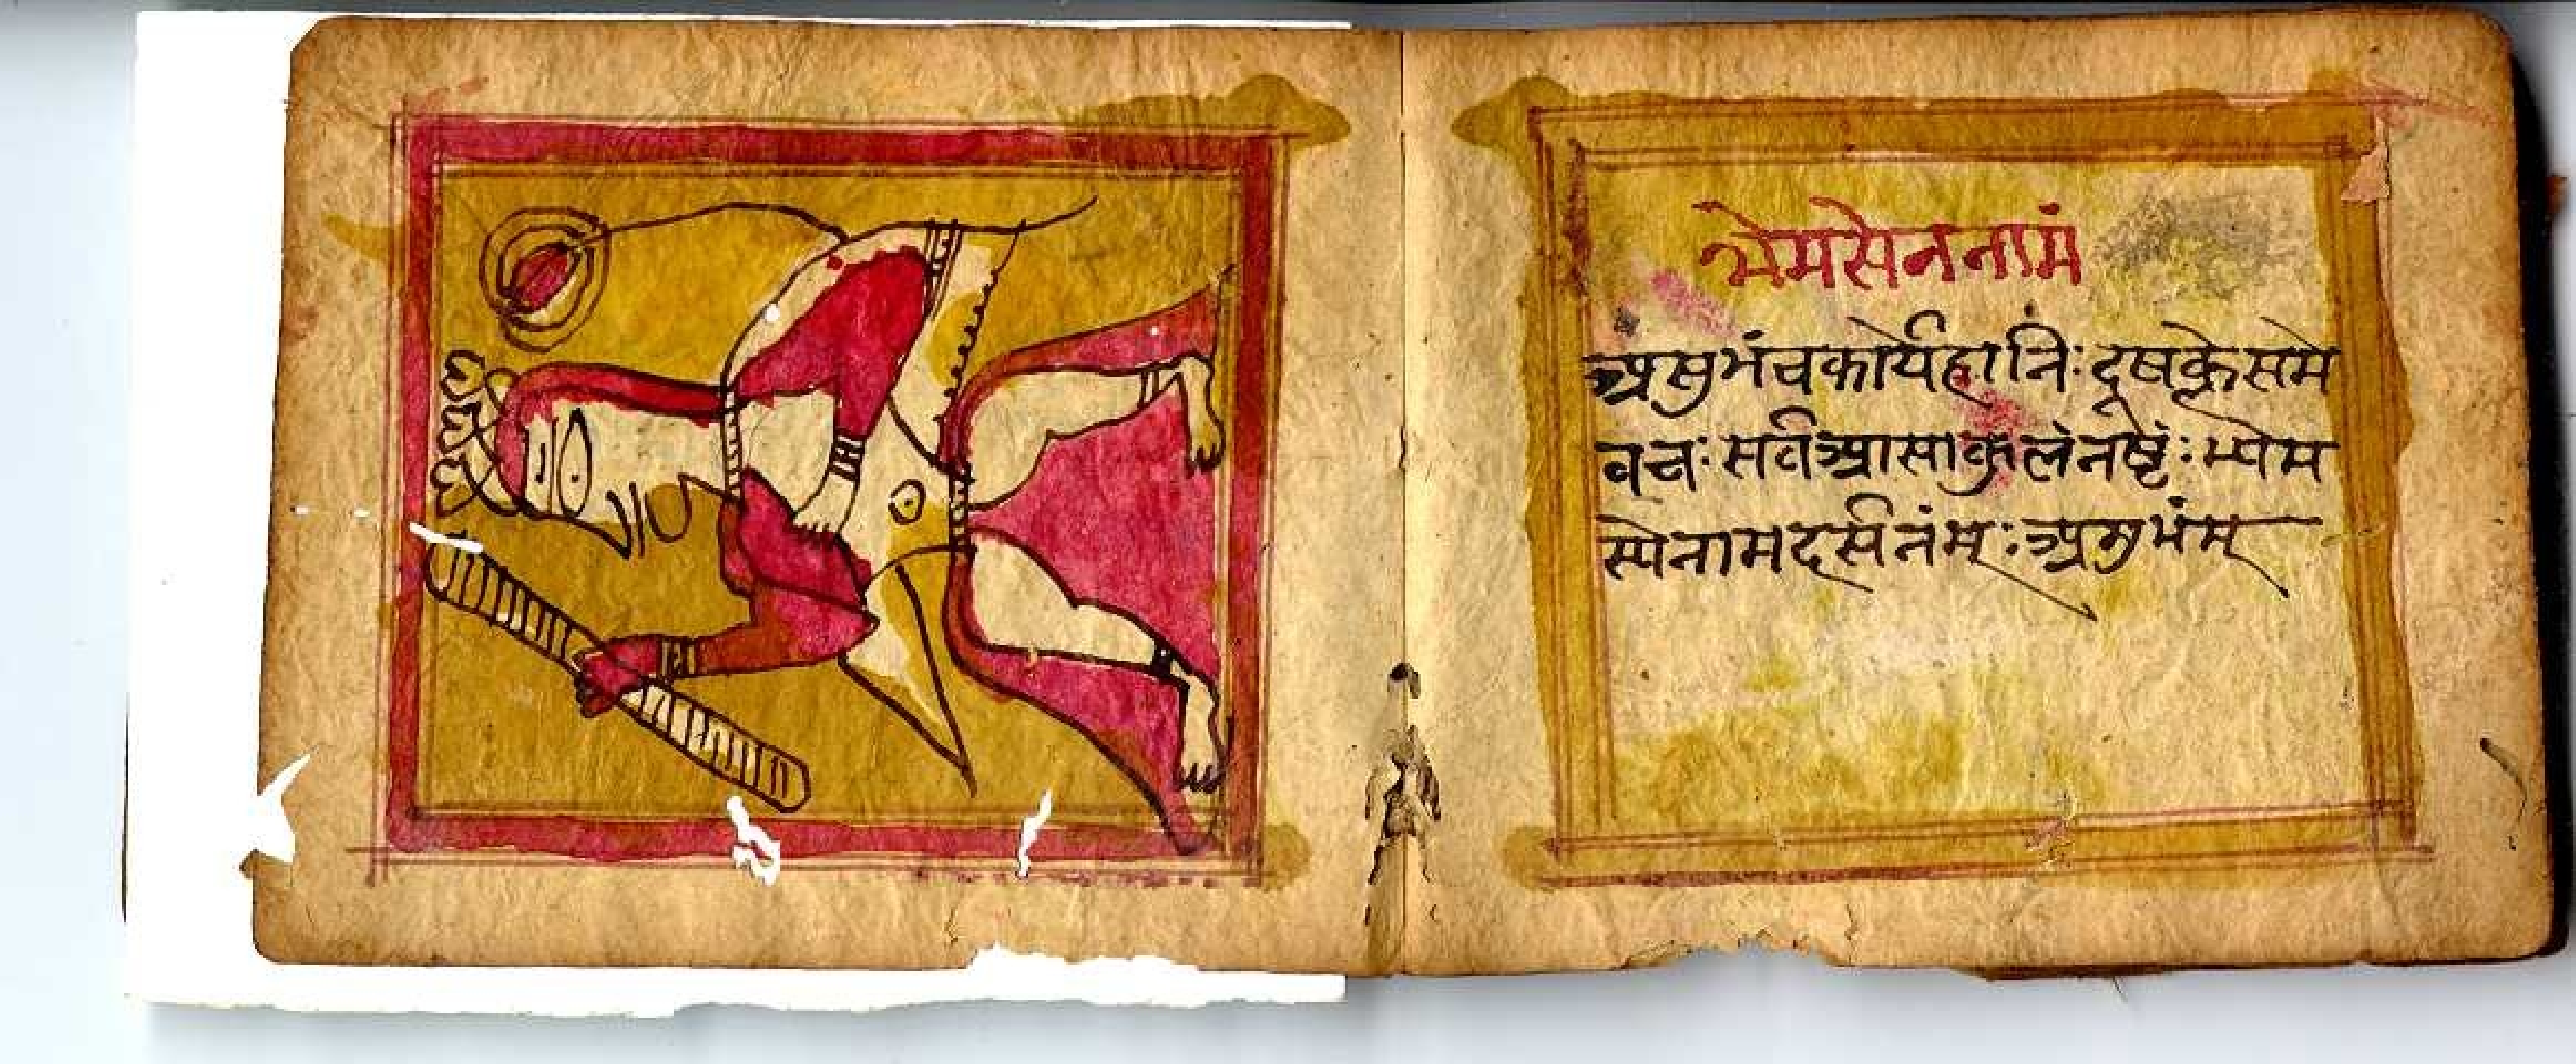 भेमसेननामं
अशुभंचकार्यहानिः दूषक्लेसमे
वचः सर्वआसाकुलंनष्टंः भ्येम
स्येनामदर्सनंम्ः अशुभंम्